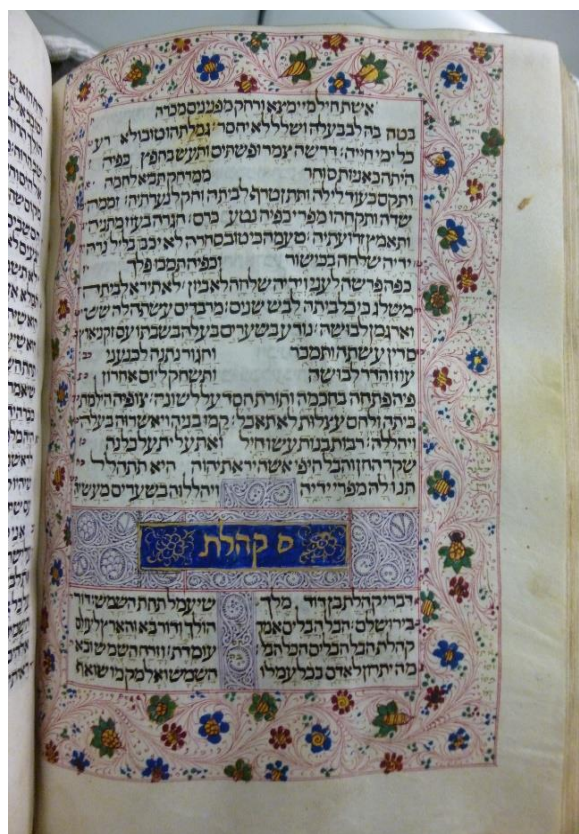 אשת חיל מי ימצא ורחק מפנינים מכרה
בטח בה לב בעלה ושלל לא יחסר גמלתהו טוב ולא רע
כל ימי חייה דרשה צמר ופשתים ותעש בחפץ כפיה
היתה כאניות סוחר ממרחק תביא לחמה
ותקם בעוד לילה ותתן טרף לביתה וחק לנערתיה זממה
שדה ותקחהו מפרי כפיה נטע כרם חגרה בעוז מתניה
ותאמץ זרועתיה טעמה כי טוב סחרה לא יכבה בליל נרה
ידיה שלחה בכישור וכפיה תמכו פלך
כפה פרשה לעני וידיה שלחה לאביון לא תירא לביתה
משלג כי כל ביתה לבש שנים מרבדים עשתה לה שש
וארגמן לבושה נודע בשערים בעלה בשבתו עם זקני ארץ
סדין עשתה ותמכר וחגור נתנה לכנעני
עוז והדר לבושה ותשחק ליום אחרון
פיה פתחה בחכמה ותורת חסד על לשונה צופיה הילכות
ביתה ולחם עצלות לא תאכל קמו בניה ויאשרוה בעלה
ויהללה רבות בנות עשו חיל ואת עלית על כלנה
שקר החן והבל היפי אשה יראת יהוה היא תתהלל
תנו לה מפרי ידיה ויהללוה בשערים מעשיה
ס קהלת
דברי קהלת בן דוד מלך
בירושלם הבל הבלים אמר
קהלת הבל הבלים הכל הבל
מה יתרון לאדם בכל עמלו
שיעמל תחת השמש דור
הולך ודור בא והארץ לעולם
עומדת וזרח השמש ובא
השמש ואל מקומו שואף